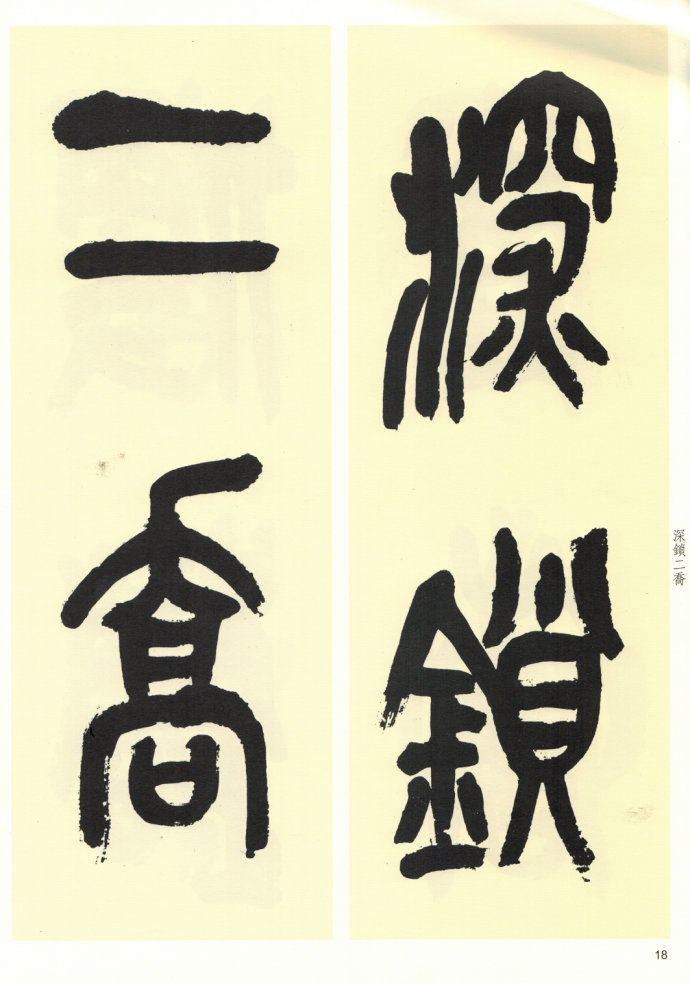 深鎖
二喬
深鎖二喬
18